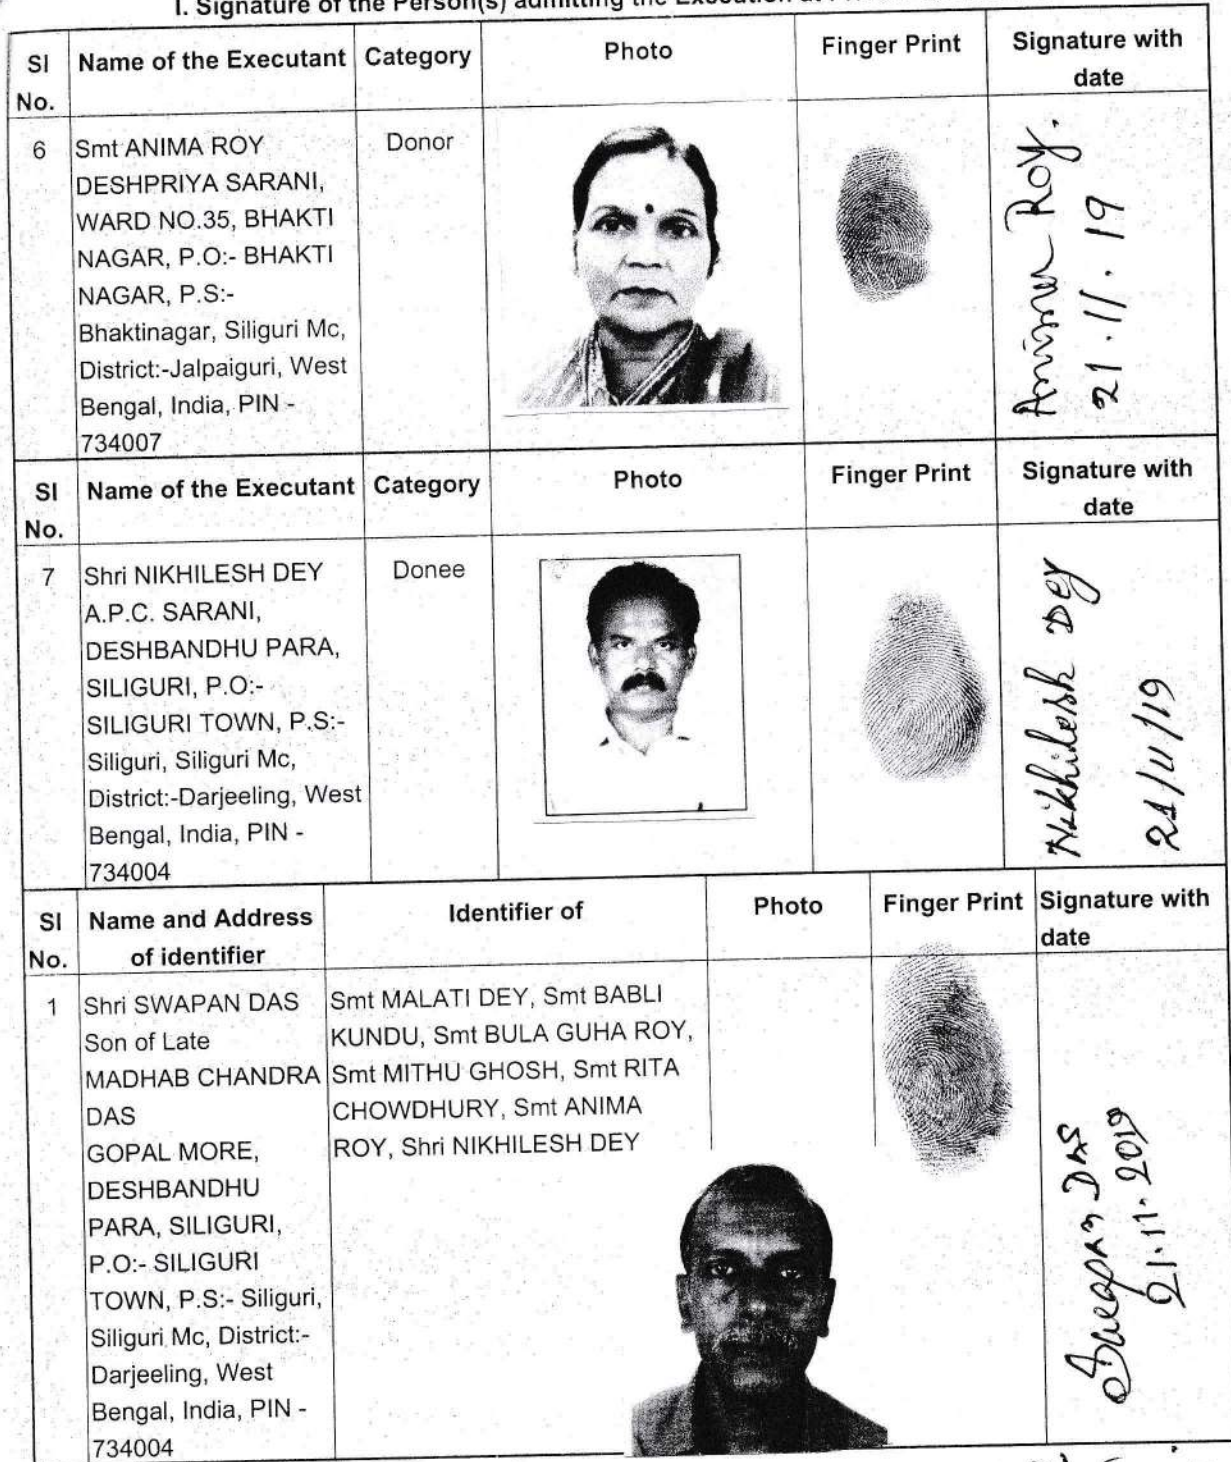 I. Signature of the Person(s) admitting the Execution at
Sl No. Name of the Executant Category Photo Finger Print Signature with date
6 Smt ANIMA ROY Donor
DESHPRIYA SARANI,
WARD NO.35, BHAKTI
NAGAR, P.O:- BHAKTI
NAGAR, P.S:-
Bhaktinagar, Siliguri Mc,
District:-Jalpaiguri, West
Bengal, India, PIN -
734007
Roy.
21.11.19
Sl No. Name of the Executant Category Photo Finger Print Signature with date
7 Shri NIKHILESH DEY Donee
A.P.C. SARANI,
DESHBANDHU PARA,
SILIGURI, P.O:-
SILIGURI TOWN, P.S:-
Siliguri, Siliguri Mc,
District:-Darjeeling, West
Bengal, India, PIN -
734004
Nikhilesh Dey
21/11/19
Sl No. Name and Address of identifier Identifier of Photo Finger Print Signature with date
1 Shri SWAPAN DAS
Son of Late
MADHAB CHANDRA
DAS
GOPAL MORE,
DESHBANDHU
PARA, SILIGURI,
P.O:- SILIGURI
TOWN, P.S:- Siliguri,
Siliguri Mc, District:-
Darjeeling, West
Bengal, India, PIN -
734004
Smt MALATI DEY, Smt BABLI
KUNDU, Smt BULA GUHA ROY,
Smt MITHU GHOSH, Smt RITA
CHOWDHURY, Smt ANIMA
ROY, Shri NIKHILESH DEY
DAS
21.11.2019